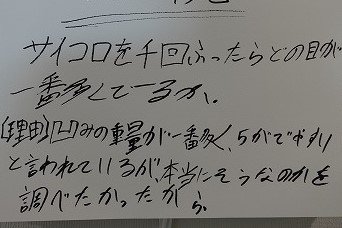 サイコロを千回ふったらどの目が
一番多くでるか。
【理由】凹みの重量が一番多く、5がでやすい
と言われているが、本当にそうなのかを
調べたかったから。